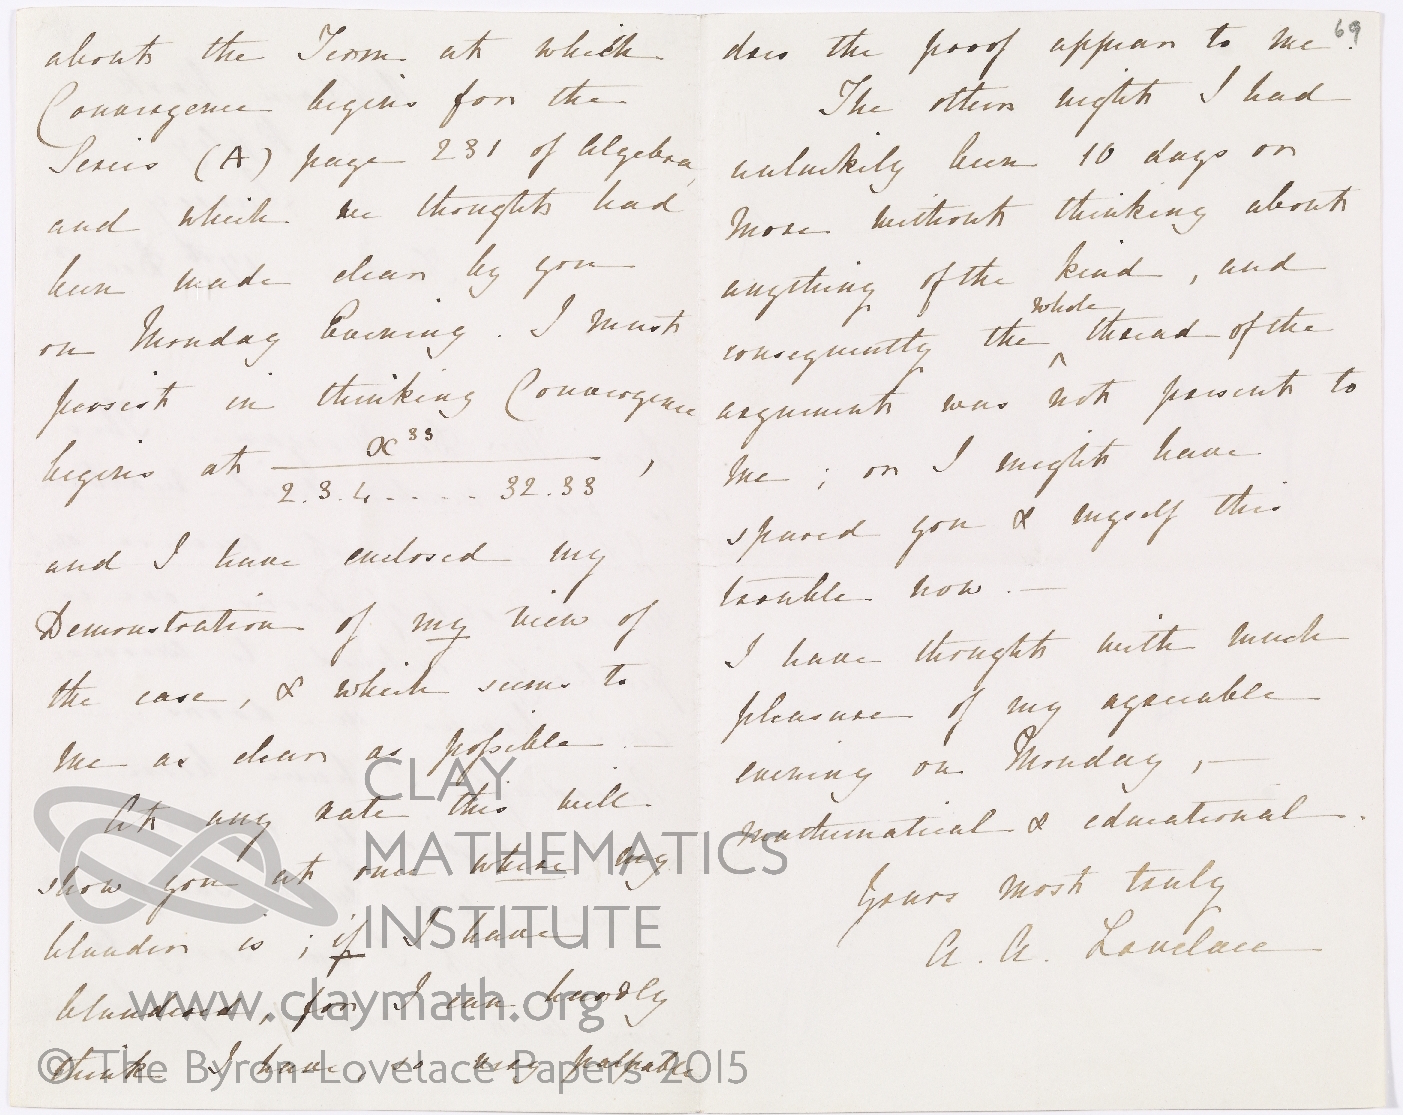 about the Term at which
Convergence begins for the
Series (A) page 231 of Algebra,
and which we thought had
been made clear by you
on Monday Evening. I must
persist in thinking Convergence
begins at x^33 / 2.3.4.....32.33 ,
and I have enclosed my
Demonstration of my view of
the case, & which seems to
me as clear as possible.—
At any rate this will
show you at once where my
blunder is; if I have
blundered, for I can hardly
think I have, so very palpable
69
does the proof appear to me.
The other night I had
unluckily been 10 days or
more without thinking about
anything of the kind, and
consequently the whole thread of the
argument was not present to
me; or I might have
spared you & myself this
trouble now.—
I have thought with much
pleasure of my agreeable
evening on Monday,—
mathematical & educational.
Yours most truly
A. A. Lovelace
CLAY
MATHEMATICS
INSTITUTE
www.claymath.org
© The Byron-Lovelace Papers 2015